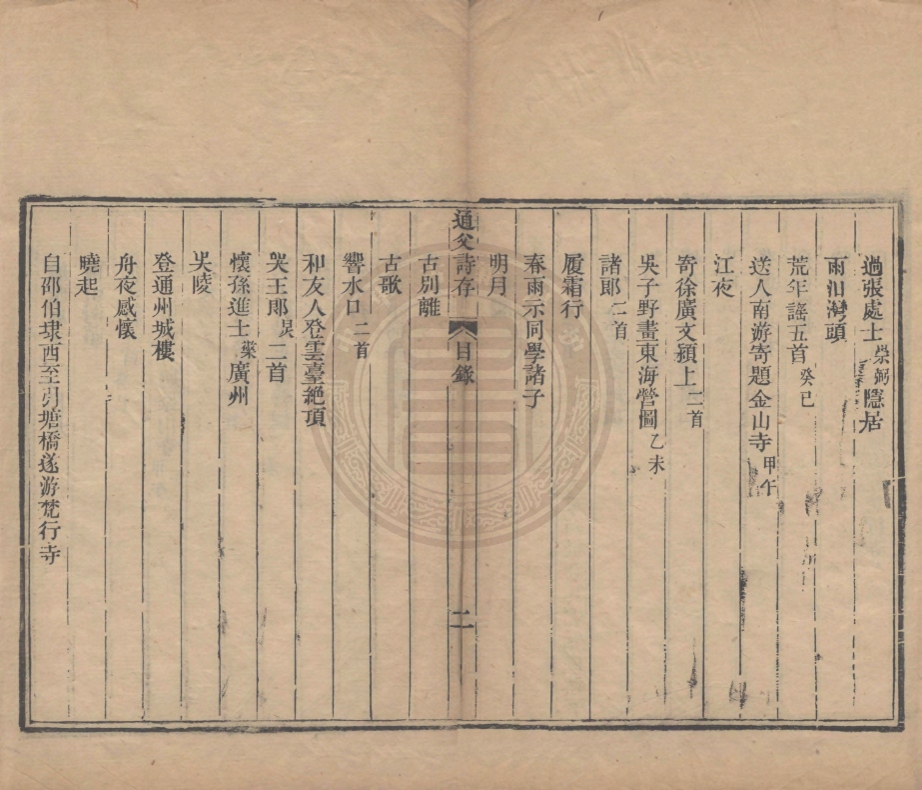 過張處士崇弼隱居
雨泊灣頭
荒年謠五首癸巳
送人南游寄題金山寺甲午
江夜
寄徐廣文潁上二首
吳子野畫東海營圖乙未
諸郎二首
履霜行
春雨示同學諸子
明月
通父詩存
目錄
二
古別離
古歌
響水口二首
和友人登雲臺絕頂
哭王郎炅二首
懷孫進士榮廣州
吳陵
登通州城樓
舟夜感懷
曉起
自邵伯埭西至引塘橋遂游梵行寺